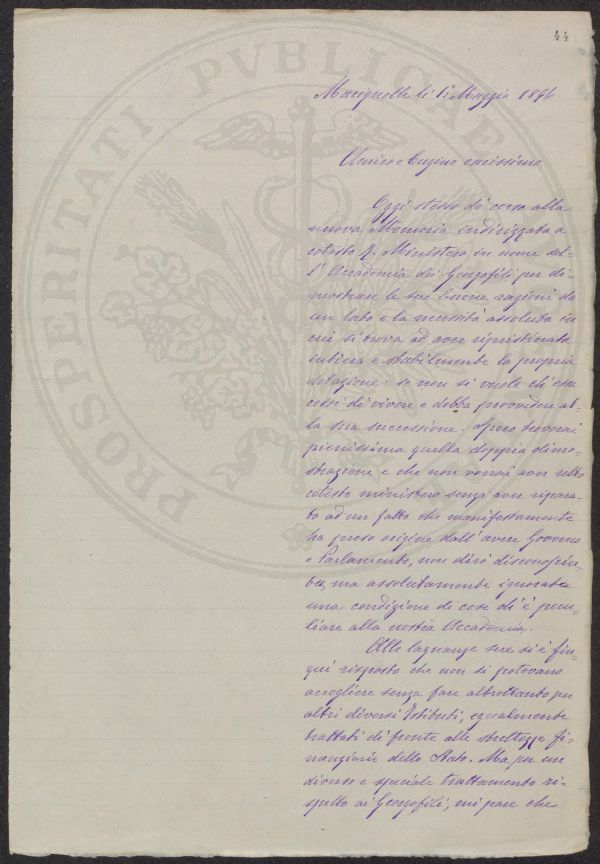 44
Marignolle li 1º Maggio 1896
Amico e Cugino carissimo
Oggi stesso dò corso alla
nuova Memoria indirizzata a
cotesto R. Ministero in nome del-
l'Accademia dei Georgofili per di-
mostrare le sue buone ragioni da
un lato e la necessità assoluta in
cui si trova ad aver ripristinata
intiera e stabilmente la propria
dotazione: se non si vuole ch'essa
cessi di vivere e debba provvedere al-
la sua successione. Spero troverai
pienissima quella doppia dimo-
strazione e che non vorrai aver
cotesto ministero senza aver ripara-
to ad un fatto che manifestamente
ha preso origine dall'avere Governo
e Parlamento, non dirò disconosciu-
ta, ma assolutamente ignorata
una condizione di cose ch'è pecu-
liare alla nostra Accademia.
Alle lagnanze sue si è fin-
quì risposto che non si potevano
accogliere senza fare altrettanto per
altri diversi Istituti, egualmente
trattati di fronte alle strettezze fi-
nanziarie dello Stato. Ma per un
diverso e speciale trattamento ri-
spetto ai Georgofili, mi pare che
PROSPERITATI PVBLICAE